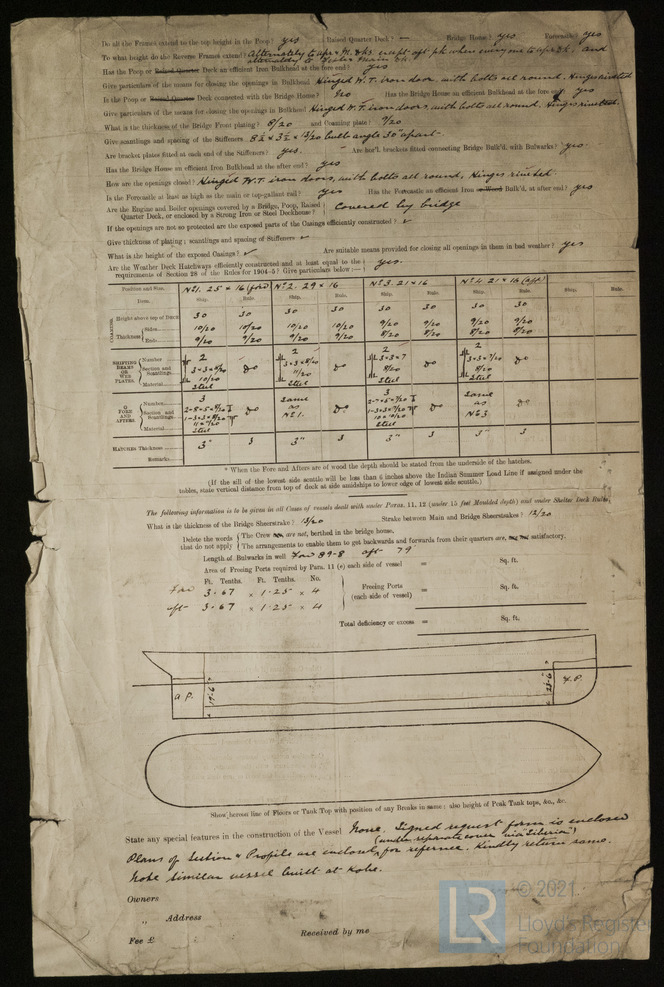 Do all the Frames extend to the top height in the Poop? yes Raised Quarter Deck? — Bridge House? yes Forecastle? yes
To what height do the Reverse Frames extend? Alternately to upr & M. dks. except aft pk when every one to upr dk. and
alternately to
Has the Poop or Raised Quarter Deck an efficient Iron Bulkhead at the fore end? yes
Give particulars of the means for closing the openings in Bulkhead Hinged W.T. iron door, with bolts all round. Hinges riveted
Is the Poop or Raised Quarter Deck connected with the Bridge House? No Has the Bridge House an efficient Bulkhead at the fore end? yes
Give particulars of the means for closing the openings in Bulkhead Hinged W.T. iron doors, with bolts all round. Hinges riveted.
What is the thickness of the Bridge Front plating? 8/20 and Coaming plate? 9/20
Give scantlings and spacing of the Stiffeners 8½ x 3½ x 13/20 bulb angle 30" apart.
Are bracket plates fitted at each end of the Stiffeners? yes. Are hor'l. brackets fitted connecting Bridge Bulk'd. with Bulwarks? yes.
Has the Bridge House an efficient Iron Bulkhead at the after end? yes
How are the openings closed? Hinged W.T. iron doors, with bolts all round, Hinges riveted.
Is the Forecastle at least as high as the main or top-gallant rail? yes Has the Forecastle an efficient Iron or Wood Bulk'd. at after end? yes
Are the Engine and Boiler openings covered by a Bridge, Poop, Raised Quarter Deck, or enclosed by a Strong Iron or Steel Deckhouse? Covered by bridge
If the openings are not so protected are the exposed parts of the Casings efficiently constructed? ✓
Give thickness of plating; scantlings and spacing of Stiffeners ✓
What is the height of the exposed Casings? ✓ Are suitable means provided for closing all openings in them in bad weather? yes
Are the Weather Deck Hatchways efficiently constructed and at least equal to the requirements of Section 28 of the Rules for 1904-5? Give particulars below:— yes.
Position and Size. No 1. 25 x 16 (ford) No 2. 29 x 16 No 3. 21 x 16 No 4. 21 x 16 (aft)
Item. Ship. Rule. Ship. Rule. Ship. Rule. Ship. Rule. Ship. Rule.
COAMING. Height above top of Deck 30 30 30 30 30 30 30 30
Thickness Sides 10/20 10/20 10/20 10/20 9/20 9/20 9/20 9/20
Ends 9/20 9/20 9/20 9/20 8/20 8/20 8/20 8/20
SHIFTING BEAMS OR WEB PLATES. Number 2 2 2 2
Section and Scantlings. do do do do
Material Steel Steel Steel Steel
FORE AND AFTERS. Number 3 same 3 same
Section and Scantlings. do as do do as do
Material Steel No 1. Steel No 3
HATCHES Thickness 3" 3 3" 3 3" 3 3" 3
Remarks
* When the Fore and Afters are of wood the depth should be stated from the underside of the hatches.
(If the sill of the lowest side scuttle will be less than 6 inches above the Indian Summer Load Line if assigned under the
tables, state vertical distance from top of deck at side amidships to lower edge of lowest side scuttle.)
The following information is to be given in all Cases of vessels dealt with under Paras. 11, 12 (under 15 feet Moulded depth) and under Shelter Deck Rules
What is the thickness of the Bridge Sheerstrake? 13/20 Strake between Main and Bridge Sheerstrakes? 12/20
Delete the words that do not apply
The Crew are, are not, berthed in the bridge house.
The arrangements to enable them to get backwards and forwards from their quarters are, are not satisfactory.
Length of Bulwarks in well Ford 89-8 aft 79
Area of Freeing Ports required by Para. 11 (e) each side of vessel = Sq. ft.
Ft. Tenths. Ft. Tenths. No.
Ford 3.67 x 1.25 x 4
Freeing Ports (each side of vessel) =
aft 3.67 x 1.25 x 4
Total deficiency or excess = Sq. ft.
a P. 19-6" 23-6 F.P.
Show hereon line of Floors or Tank Top with position of any Breaks in same; also height of Peak Tank tops, &c., &c.
State any special features in the construction of the Vessel None. Signed request form is enclosed
(under separate cover "via Siberia")
Plans of Section & Profile are enclosed, for reference. Kindly return same.
Note similar vessel built at Kobe.
Owners
" Address
Received by me
Fee £ : :
LR © 2021
Lloyd's Register
Foundation